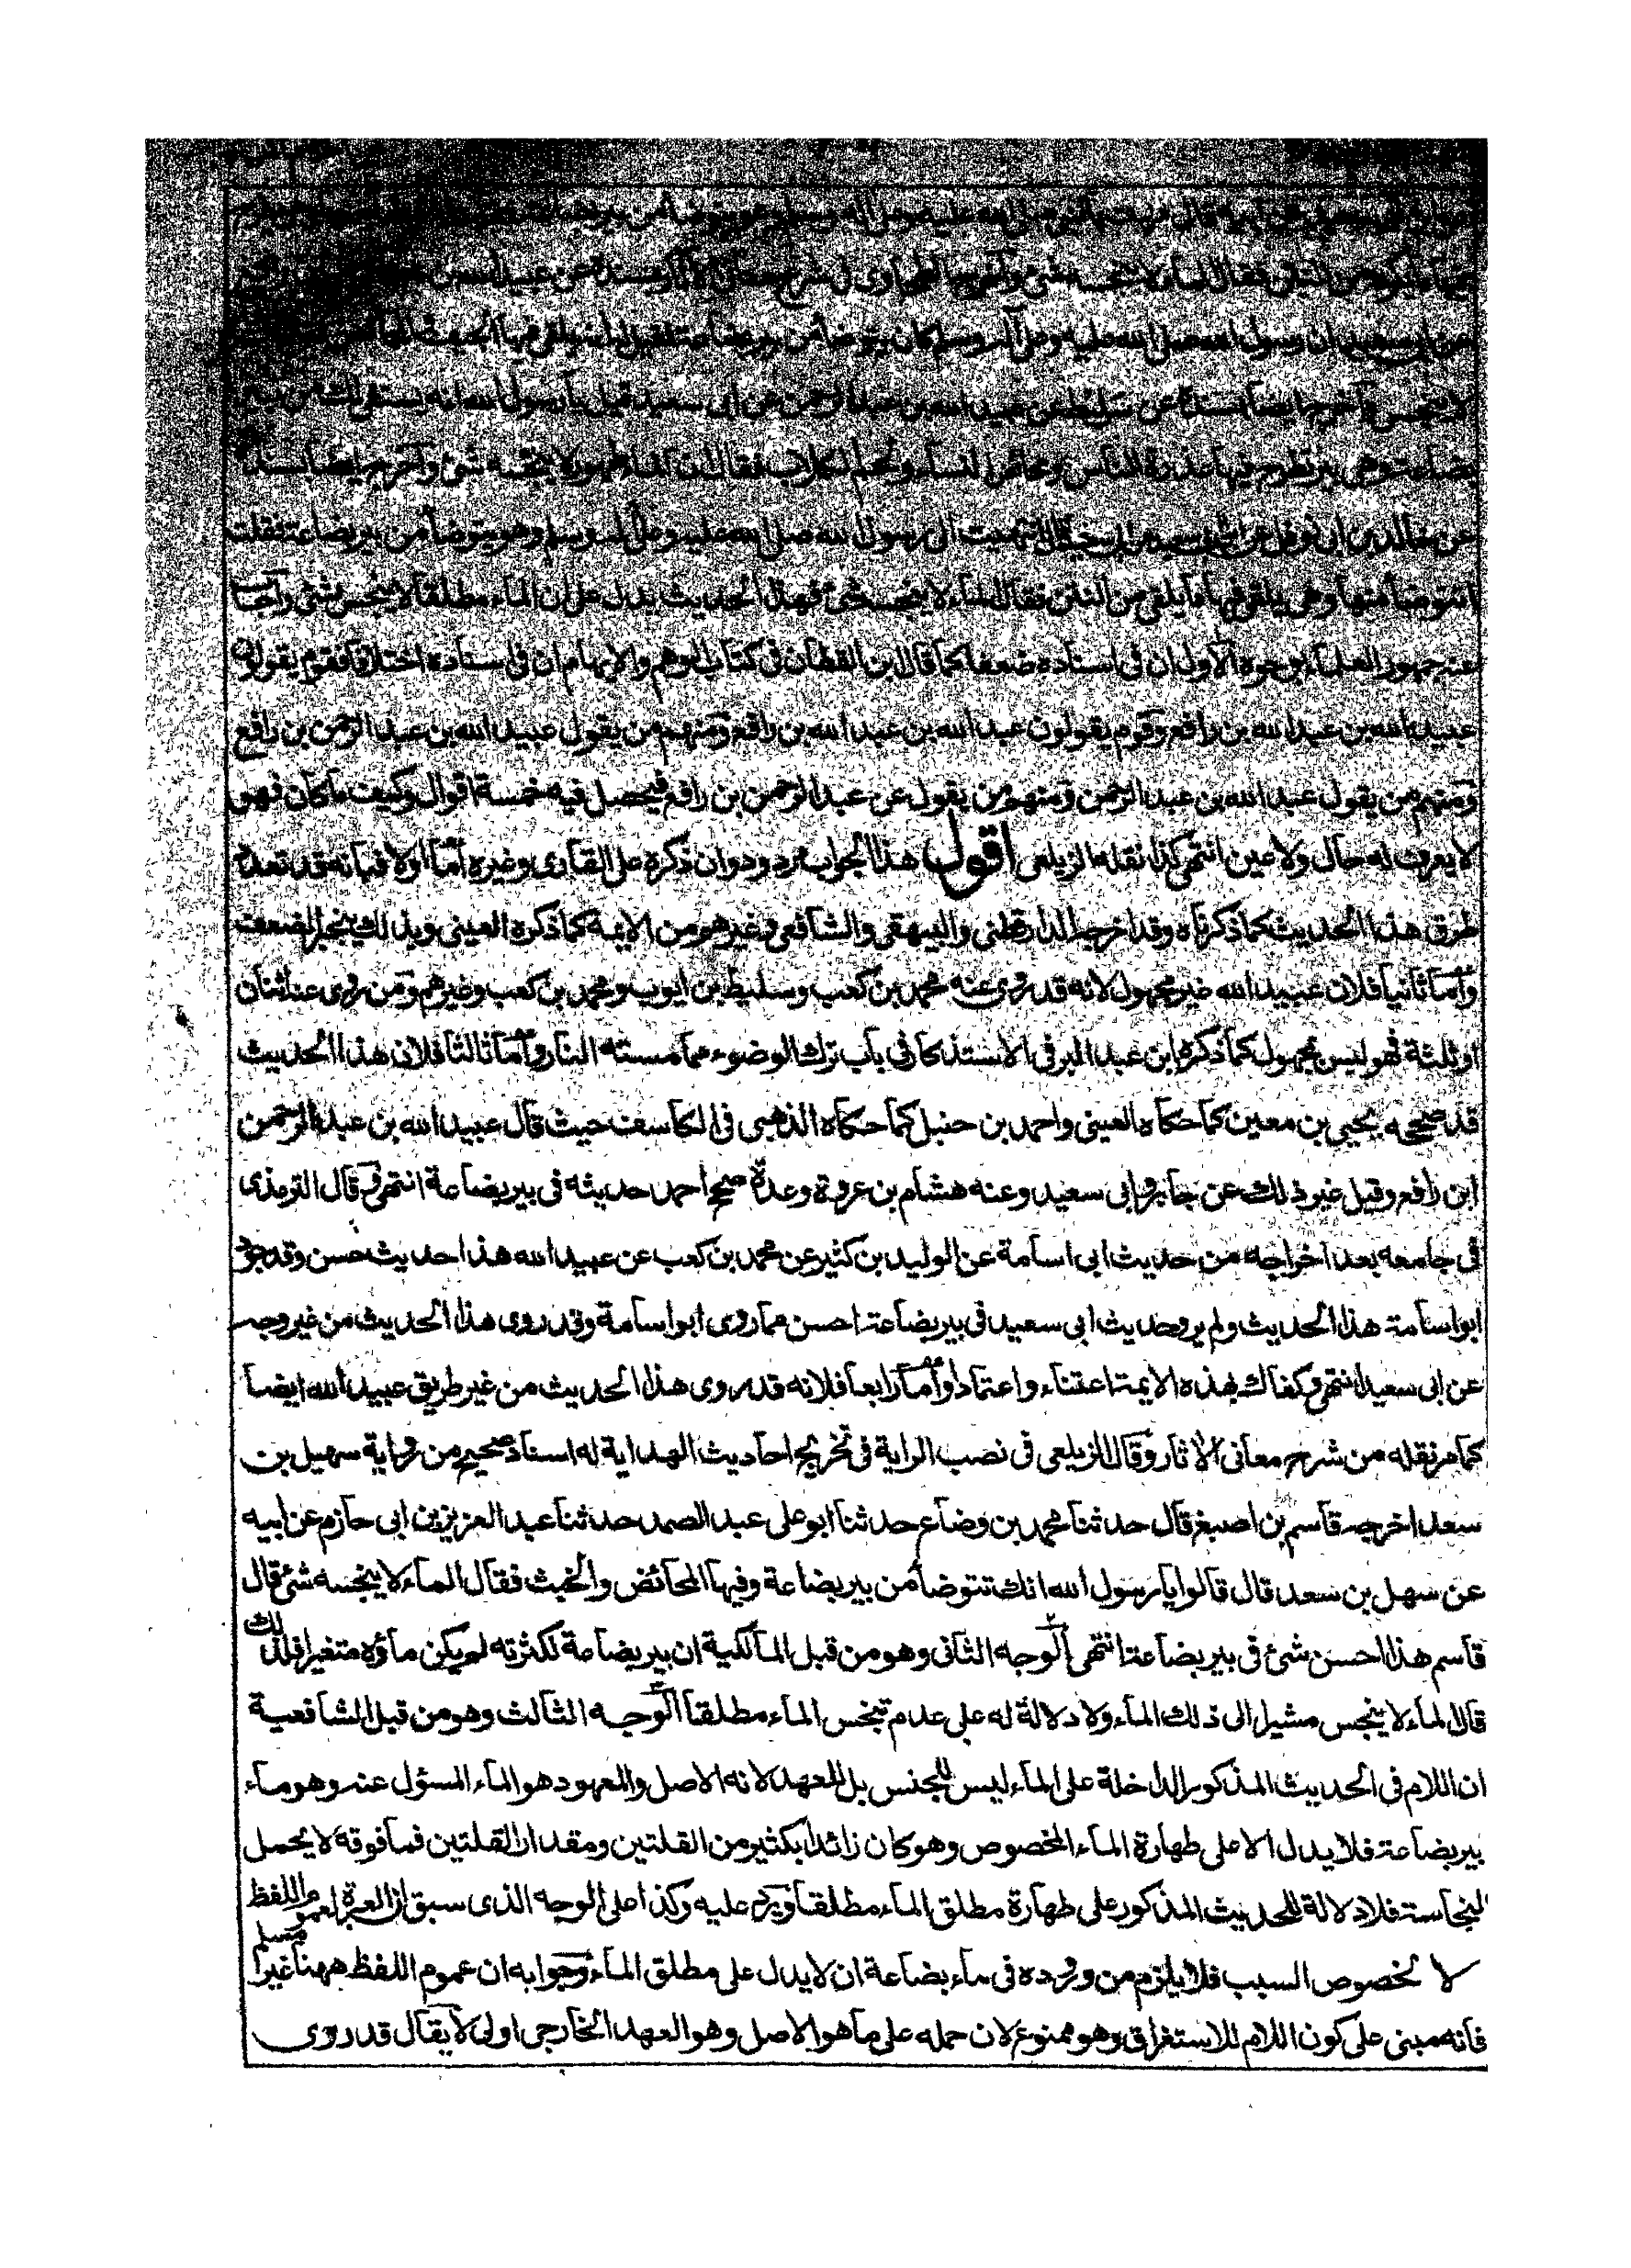 عن ابيه قال مررت بالنبي صلى الله عليه وعلى اله وسلم وهو يتوضأ من بير بضاعة
من النتن فقال الماء لا ينجسه شئ وأخرج الطحاوى فى شرح معانى الآثار بسنده عن عبيد الله بن
عن ابى سعيد ان رسول الله صلى الله عليه وعلى آله وسلم كان يتوضأ من بير بضاعة فقيل انه يلقى فيها الجيف
لا ينجس وأخرج ايضا بسنده عن سليط عن عبيد الله بن عبد الرحمن عن ابى سعيد قيل يا رسول الله انه يستقى لك من بير
بضاعة وهى بير تطرح فيها عذرة الناس ومحائض النساء ولحم الكلاب فقال ان الماء طهور لا ينجسه شئ وأخرج ايضا بسنده
عن خالد بن ابى نوفل عن ابن ابى سعيد عن ابيه قال انتهيت الى رسول الله صلى الله عليه وعلى آله وسلم وهو يتوضأ من بير بضاعة فقلت
أتتوضأ منها وهى يلقى فيها ما يلقى من النتن فقال الماء لا ينجسه شئ فهذا الحديث يدل على ان الماء مطلقا لا ينجس بشئ وأجاب
عنه جمهور العلماء بوجوه الاول ان فى اسناده ضعفا كما قال ابن القطان فى كتاب الوهم والايهام ان فى اسناده اختلافا فقوم يقولون
عبيد الله بن عبد الله بن رافع وقوم يقولون عبد الله بن عبد الله بن رافع ومنهم من يقول عبيد الله بن عبد الرحمن بن رافع
ومنهم من يقول عبد الله بن عبد الرحمن ومنهم من يقول عن عبد الرحمن بن رافع فيحصل فيه خمسة اقوال وكيف ما كان فهو
لا يعرف له حال ولا عين انتهى كذا نقله الزيلعى اقول هذا الجواب مردود وان ذكره على القارى وغيره أما أولا فبأنه قد تعدد
طرق هذا الحديث كما ذكرناه وقد اخرجه الدارقطنى والبيهقى والشافعى وغيرهم من الايمة كما ذكره العينى وبذلك ينجبر الضعف
وأما ثانيا فلان عبيد الله غير مجهول لانه قد روى عنه محمد بن كعب وسليط بن ايوب ومحمد بن كعب وغيرهم ومن روى عنه اثنان
او ثلثة فهو ليس بمجهول كما ذكره ابن عبد البر فى الاستذكار فى باب ترك الوضوء مما مسته النار وأما ثالثا فلان هذا الحديث
قد صححه يحيى بن معين كما حكاه العينى واحمد بن حنبل كما حكاه الذهبى فى الكاسف حيث قال عبيد الله بن عبد الرحمن
ابن رافع وقيل غير ذلك عن جابر وابى سعيد وعنه هشام بن عروة وعدة صحح احمد حديثه فى بير بضاعة انتهى وقال الترمذى
فى جامعه بعد اخراجه من حديث ابى اسامة عن الوليد بن كثير عن محمد بن كعب عن عبيد الله هذا حديث حسن وقد جود
ابو اسامة هذا الحديث ولم يرو حديث ابى سعيد فى بير بضاعة احسن مما روى ابو اسامة وقد روى هذا الحديث من غير وجه
عن ابى سعيد انتهى وكفاك بهذه الايمة اعتناء واعتمادا وأما رابعا فلانه قد روى هذا الحديث من غير طريق عبيد الله ايضا
كما مر نقله من شرح معانى الآثار وقال الزيلعى فى نصب الراية فى تخريج احاديث الهداية له اسناد صحيح من رواية سهيل بن
سعد اخرجه قاسم بن اصبغ قال حدثنا محمد بن وضاع حدثنا ابو على عبد الصمد حدثنا عبد العزيز بن ابى حازم عن ابيه
عن سهل بن سعد قال قالوا يا رسول الله انك تتوضأ من بير بضاعة وفيها المحائض والخبث فقال الماء لا ينجسه شئ قال
قاسم هذا احسن شئ فى بير بضاعة انتهى الوجه الثانى وهو من قبل المالكية ان بير بضاعة لكثرته لم يكن ماؤه متغيرا فلذلك
قال الماء لا ينجس مشيرا الى ذلك الماء ولا دلالة له على عدم تنجس الماء مطلقا الوجه الثالث وهو من قبل الشافعية
ان اللام فى الحديث المذكور الداخلة على الماء ليس للجنس بل للعهد لانه الاصل والمعهود هو الماء المسؤل عنه وهو ماء
بير بضاعة فلا يدل الا على طهارة الماء المخصوص وهو كان زائدا بكثير من القلتين ومقدار القلتين فما فوقه لا يحمل
النجاسة فلا دلالة للحديث المذكور على طهارة مطلق الماء مطلقا ويرد عليه وكذا على الوجه الذى سبق ان العبرة لعموم اللفظ
لا لخصوص السبب فلا يلزم من وروده فى ماء بضاعة ان لا يدل على مطلق الماء وجوابه ان عموم اللفظ ههنا غير مسلم
فانه مبنى على كون اللام للاستغراق وهو ممنوع لان حمله على ما هو الاصل وهو العهد الخارجى اولى لا يقال قد روى